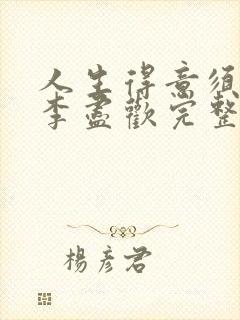 人生得意须
李盡歡完整
楊彦君